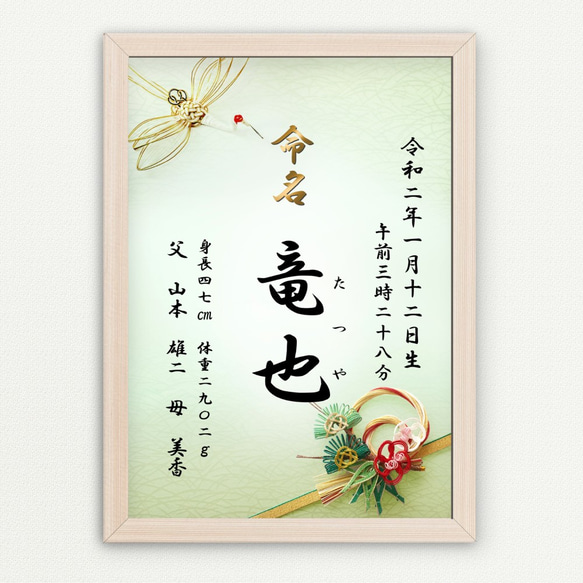 令和二年一月十二日生
午前三時二十八分
命名
竜也
たつや
身長四七㎝ 体重二九〇二g
父 山本 雄二 母 美香